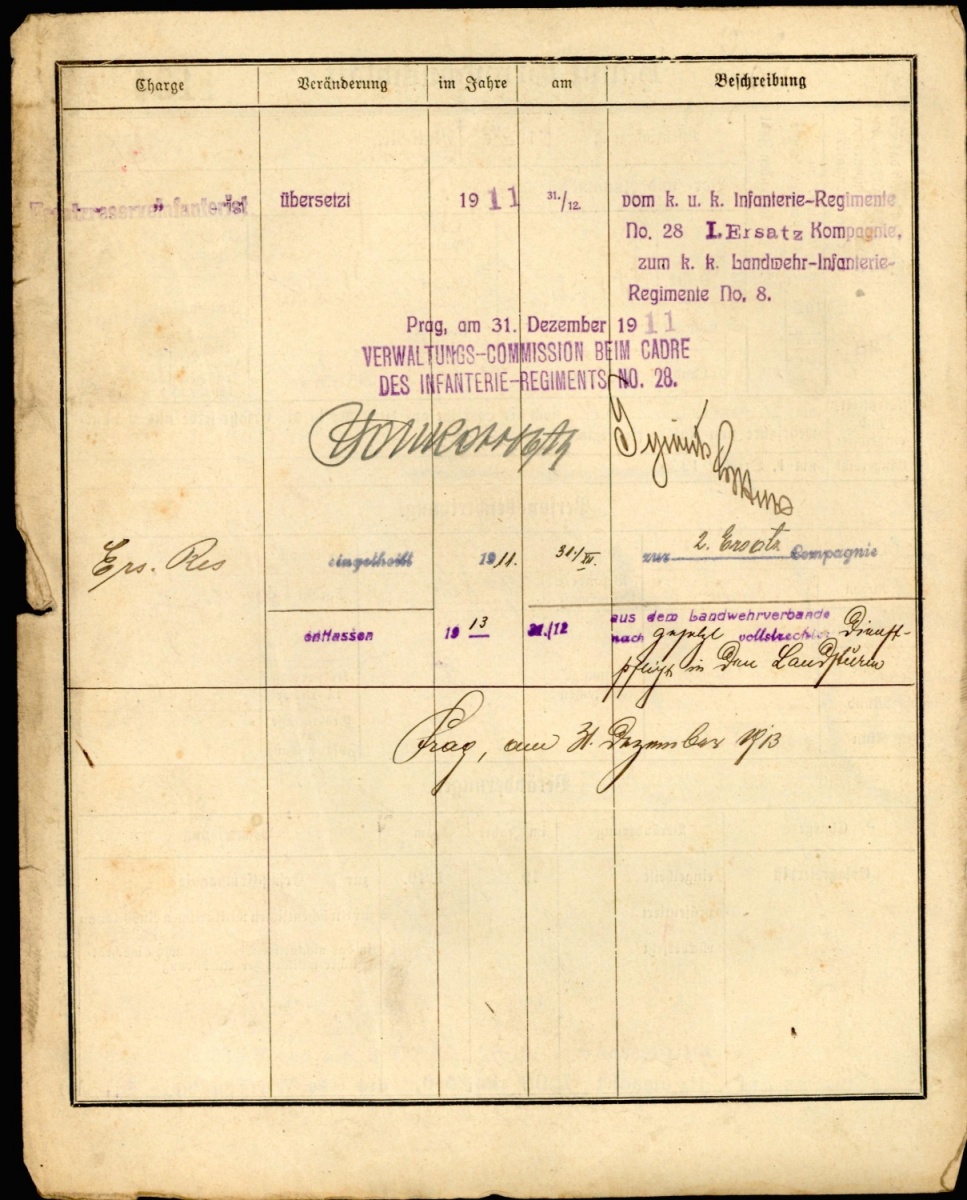 Charge Veränderung im Jahre am Beschreibung
übersetzt 1911 31./12. vom k. u. k. Infanterie-Regimente
No. 28 I. Ersatz Kompagnie,
zum k. k. Landwehr-Infanterie-
Regimente No. 8.
Prag, am 31. Dezember 1911
VERWALTUNGS-COMMISSION BEIM CADRE
DES INFANTERIE-REGIMENTS NO. 28.
Ers. Res eingetheilt 1911. 31./XII. zur 2. Ersatz Compagnie
entlassen 1913 31./12 aus dem Landwehrverbande
nach gesetzl vollstreckter Dienst-
pflicht in den Landsturm
Prag, am 31. Dezember 1913